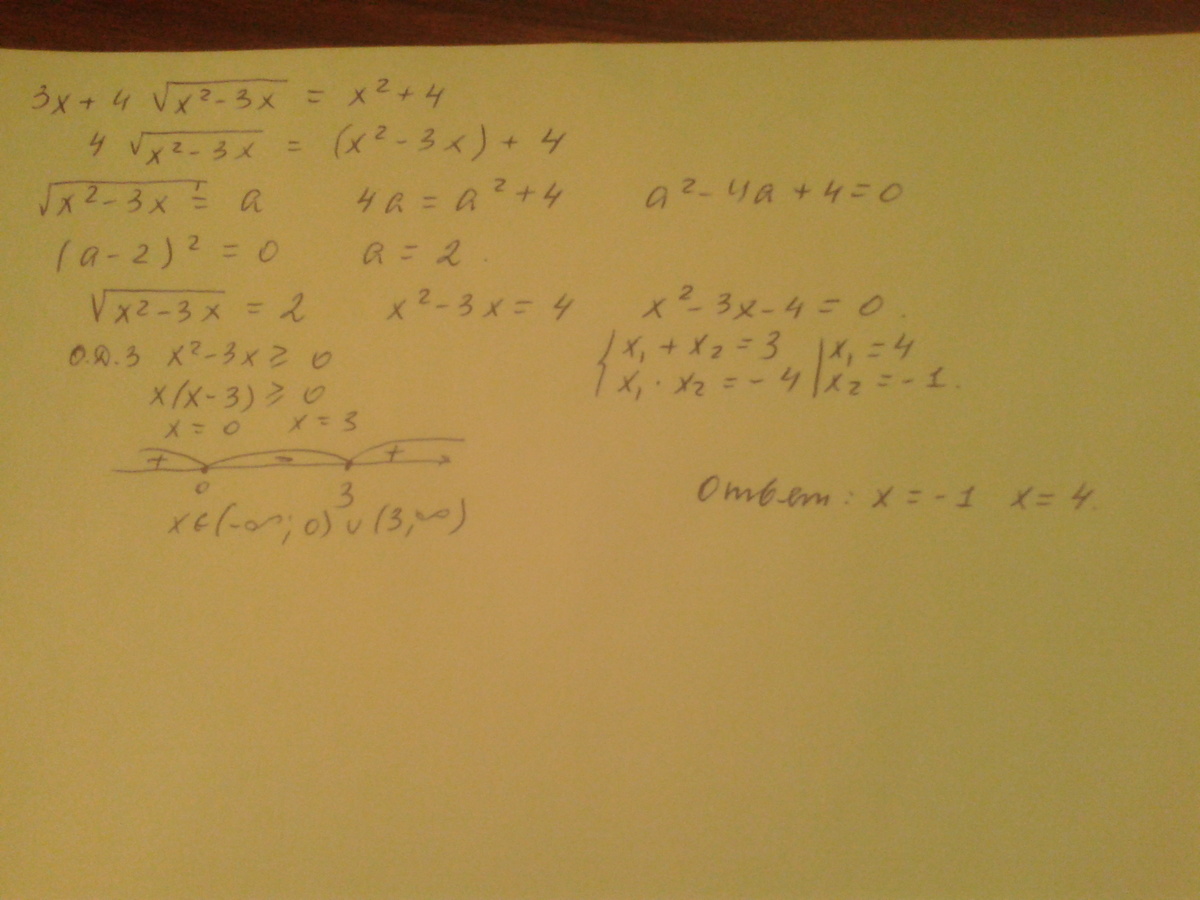 3x + 4 √(x² - 3x) = x² + 4
4 √(x² - 3x) = (x² - 3x) + 4
√(x² - 3x) = a 4a = a² + 4 a² - 4a + 4 = 0
(a - 2)² = 0 a = 2.
√(x² - 3x) = 2 x² - 3x = 4 x² - 3x - 4 = 0.
О.Д.З x² - 3x ≥ 0
x(x - 3) ≥ 0
x = 0 x = 3
+ - +
0 3
x ∈ (-∞; 0) ∪ (3, ∞)
{ x₁ + x₂ = 3 | x₁ = 4
{ x₁ · x₂ = -4 | x₂ = -1.
Ответ: x = -1 x = 4.